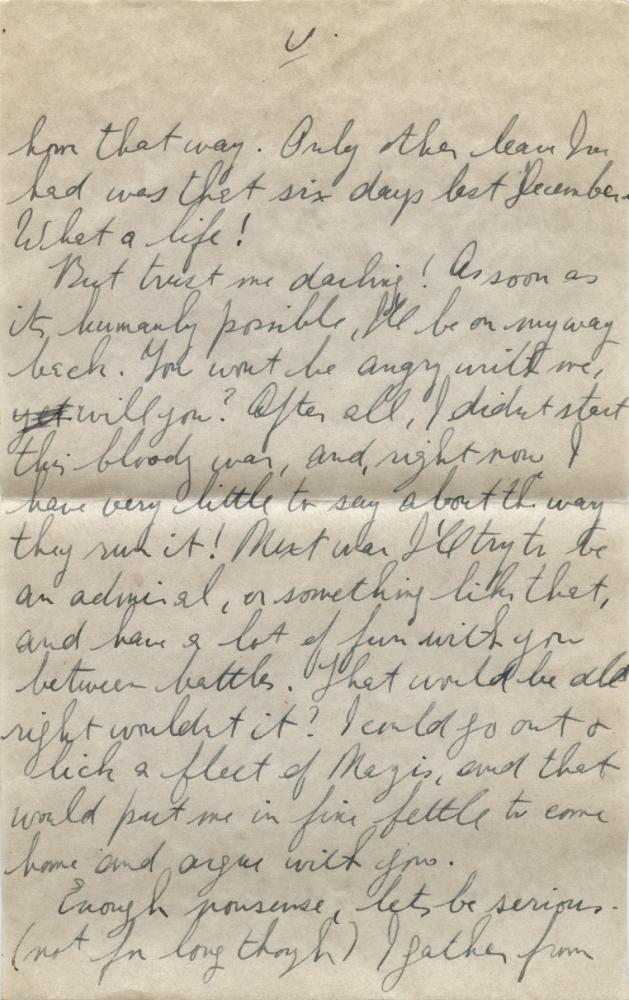 V.
home that way. Only other leave I've
had was that six days last December.
What a life!
But trust me darling! As soon as
its humanly possible, I'll be on my way
back. You wont be angry with me,
will you? After all, I didnt start
this bloody war, and, right now I
have very little to say about the way
they run it! Next war I'll try to be
an admiral, or something like that,
and have a lot of fun with you
between battles. That would be all
right wouldnt it? I could go out &
lick a fleet of Nazis, and that
would put me in fine fettle to come
home and argue with you.
Enough nonsense, lets be serious.
(not for long though) I gather from